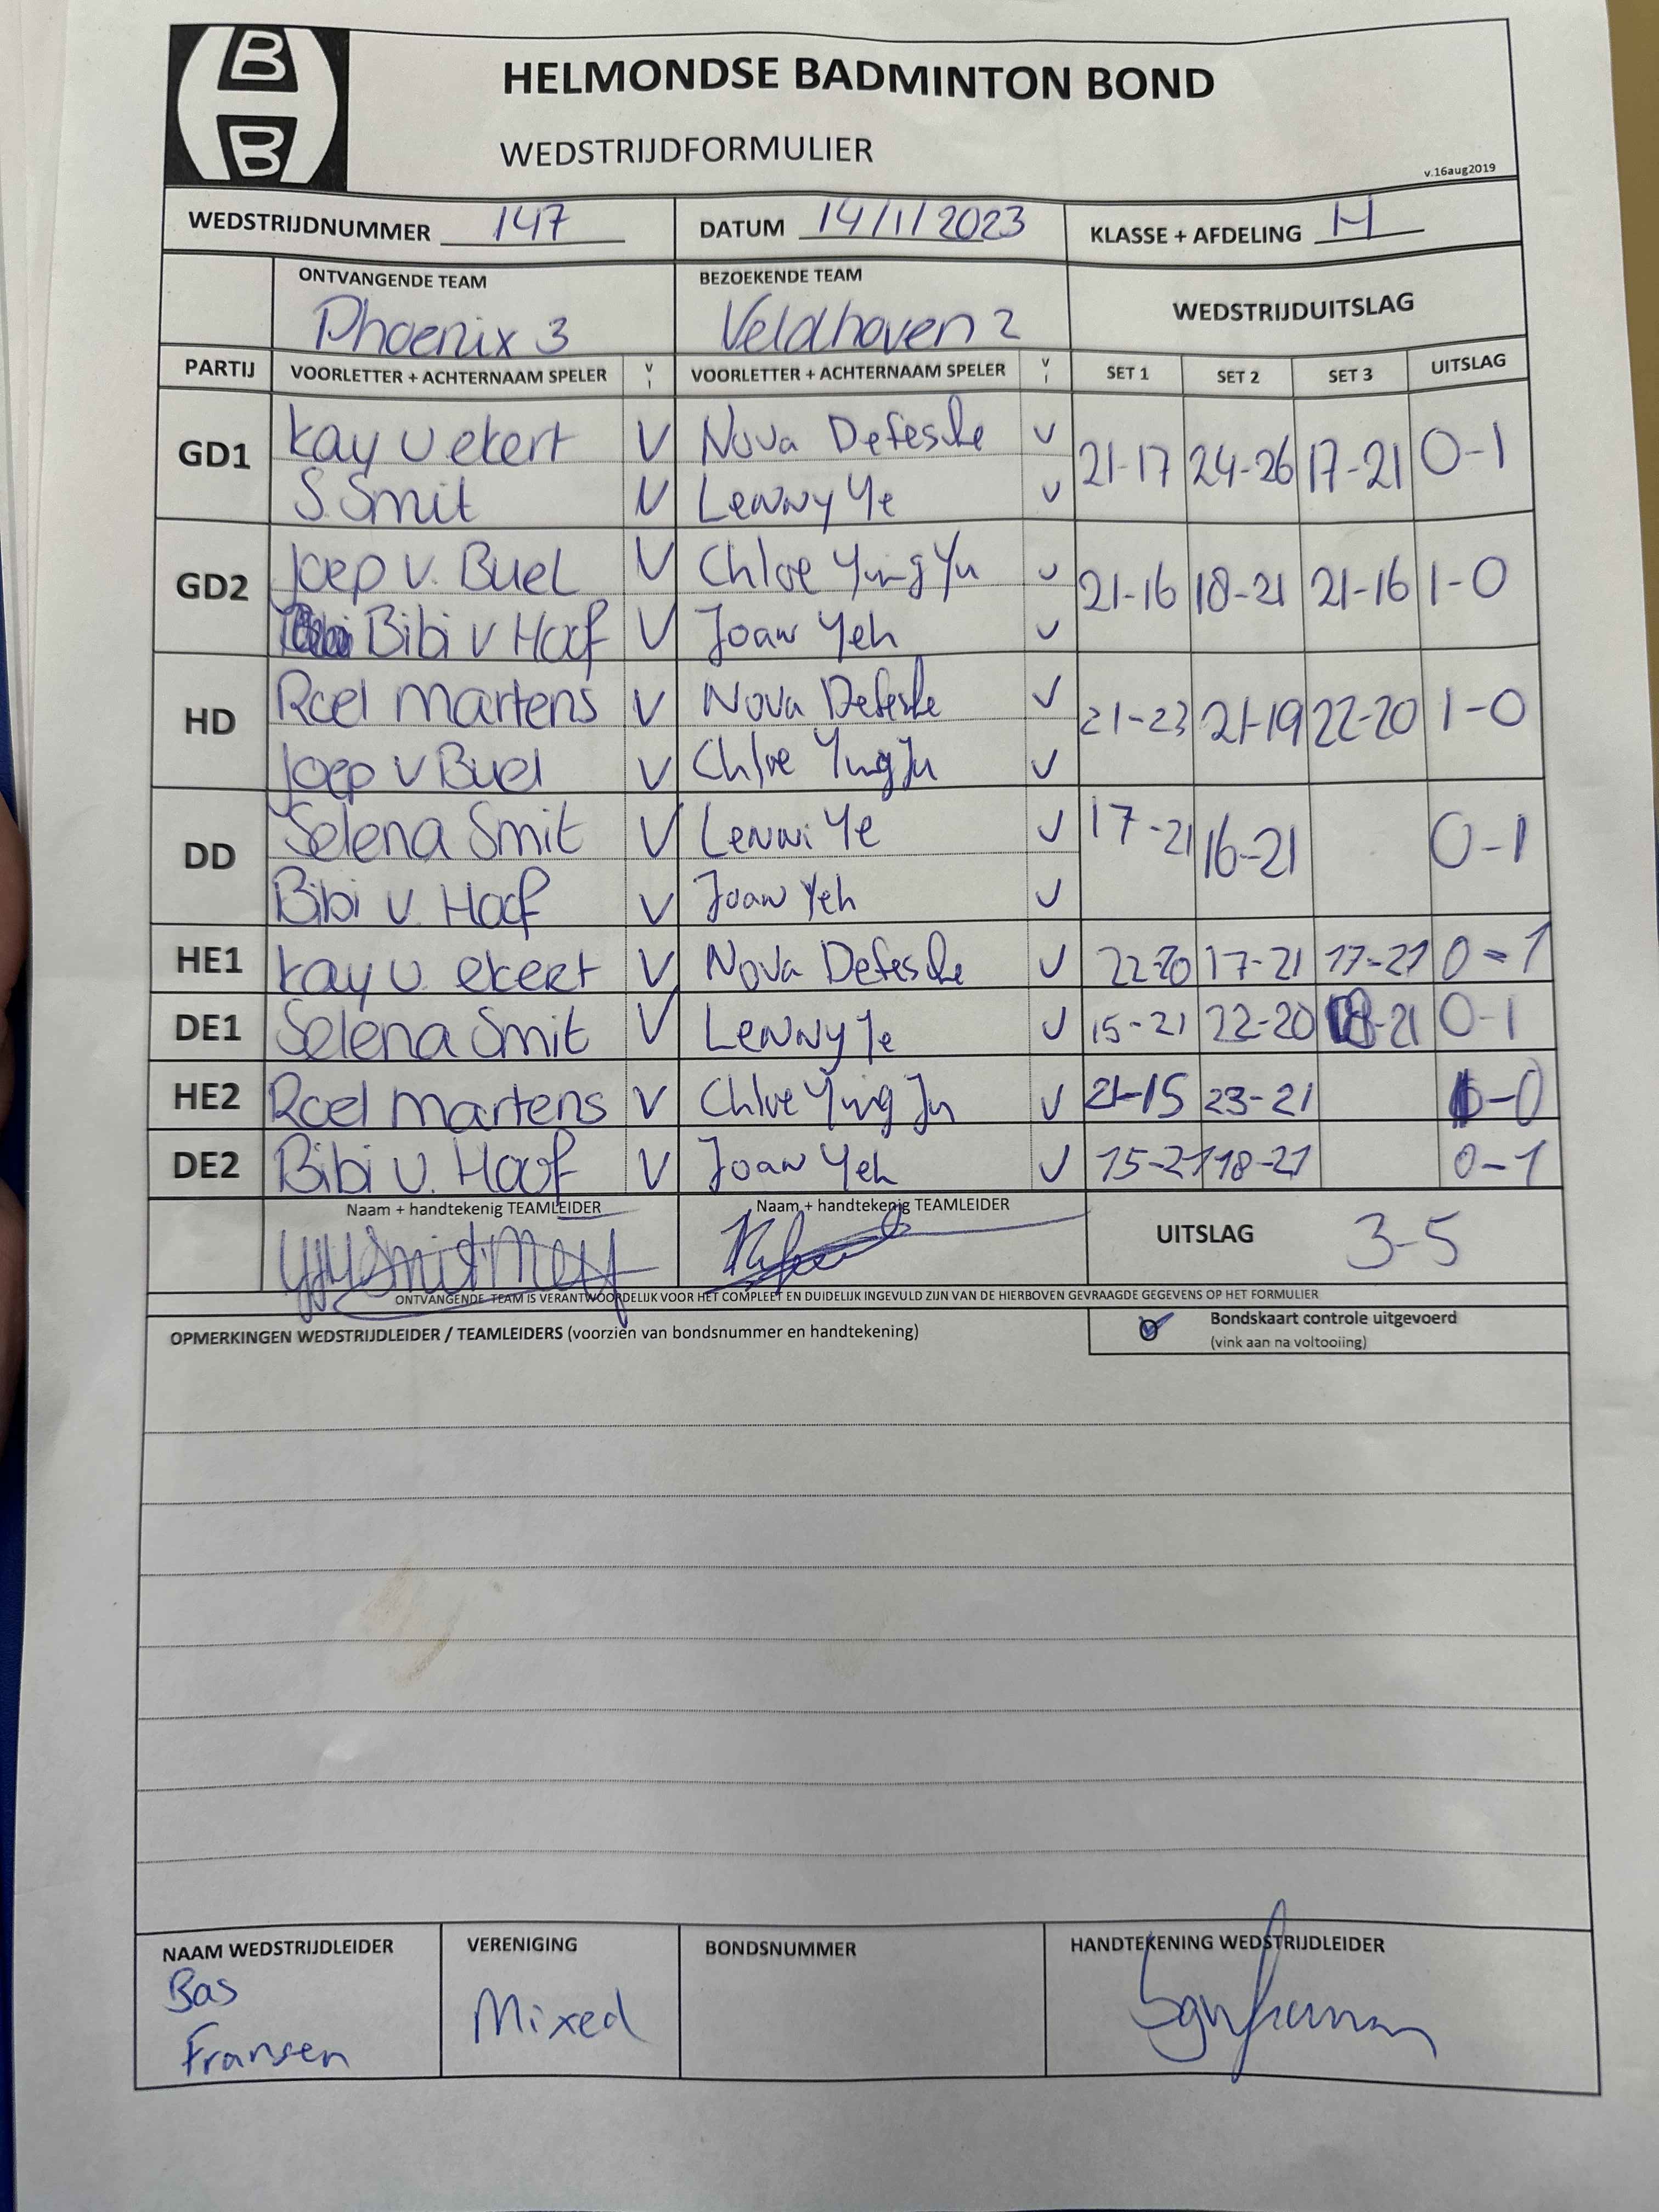 B
B
HELMONDSE BADMINTON BOND
WEDSTRIJDFORMULIER
v.16aug2019
WEDSTRIJDNUMMER 147 DATUM 14/1/2023 KLASSE + AFDELING H
ONTVANGENDE TEAM BEZOEKENDE TEAM WEDSTRIJDUITSLAG
Phoenix 3 Veldhoven 2
PARTIJ VOORLETTER + ACHTERNAAM SPELER V I VOORLETTER + ACHTERNAAM SPELER V I SET 1 SET 2 SET 3 UITSLAG
GD1 Kay v ekert V Nova Defesche V 21-17 24-26 17-21 0-1
S. Smit V Lenny Ye V
GD2 Joep v. Buel V Chloe Ying Yu V 21-16 18-21 21-16 1-0
Bibi v Hoof V Joan Yeh V
HD Roel Martens V Nova Defesche V 21-23 21-19 22-20 1-0
Joep v Buel V Chloe Ying Ju V
DD Selena Smit V Lenni Ye V 17-21 16-21 0-1
Bibi v. Hoof V Joan Yeh V
HE1 Kay v. ekert V Nova Defesche V 22-20 17-21 17-21 0-1
DE1 Selena Smit V Lenny Ye V 15-21 22-20 18-21 0-1
HE2 Roel Martens V Chloe Ying Ju V 21-15 23-21 1-0
DE2 Bibi v. Hoof V Joan Yeh V 15-21 18-21 0-1
Naam + handtekenig TEAMLEIDER Naam + handtekenig TEAMLEIDER UITSLAG 3-5
ONTVANGENDE TEAM IS VERANTWOORDELIJK VOOR HET COMPLEET EN DUIDELIJK INGEVULD ZIJN VAN DE HIERBOVEN GEVRAAGDE GEGEVENS OP HET FORMULIER
OPMERKINGEN WEDSTRIJDLEIDER / TEAMLEIDERS (voorzien van bondsnummer en handtekening) Bondskaart controle uitgevoerd
(vink aan na voltooiing)
NAAM WEDSTRIJDLEIDER VERENIGING BONDSNUMMER HANDTEKENING WEDSTRIJDLEIDER
Bas
Fransen Mixed